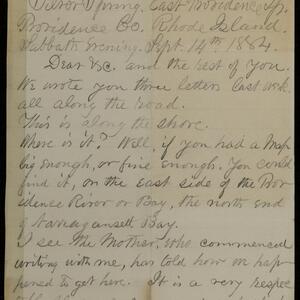 Silver Spring, East Providence Tp.
Providence Co. Rhode Island.
Sabbath Evening, Sept. 14th 1884.
Dear V.C. and the best of You.
We wrote you three letters last week
all along the road.
This is along the shore.
Where is it? Well, if you had a Map
big enough, or fine enough. You could
find it, on the east side of the Prov-
idence River or Bay, the north end
of Narragansett Bay.
I see the Mother, who commenced
writing with me, has told how we hap-
pened to get here. It is a very respec